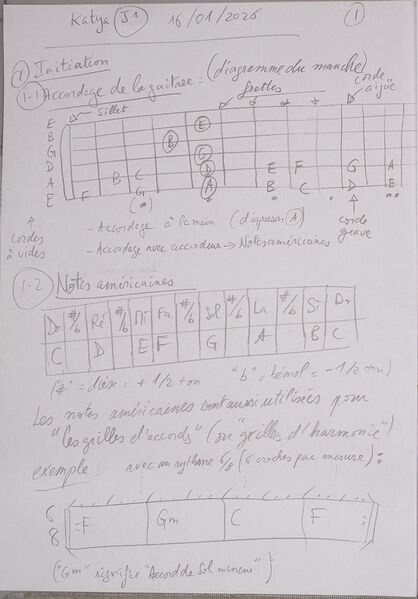 Katya S1 16/01/2026 1
1) Initiation
1-1 Accordage de la guitare = (diagramme du manche)
Sillet frettes corde aigüe
E E
B B
G C
D B C D E F G A
A G A B C D E
E F
cordes à vides
- Accordage à la main (diapason A)
corde grave
- Accordage avec accordeur → Notes américaines
1-2 Notes américaines
Do #/b Ré #/b Mi Fa #/b Sol #/b La #/b Si Do
C D E F G A B C
("#" = dièse = + 1/2 ton "b" = bémol = - 1/2 ton)
Les notes américaines sont aussi utilisées pour
"les grilles d'accords" (ou "grilles d'harmonie")
exemple avec un rythme 6/8 (6 croches par mesure) :
6
8 :F Gm C F :
("Gm" signifie "Accord de Sol mineur")